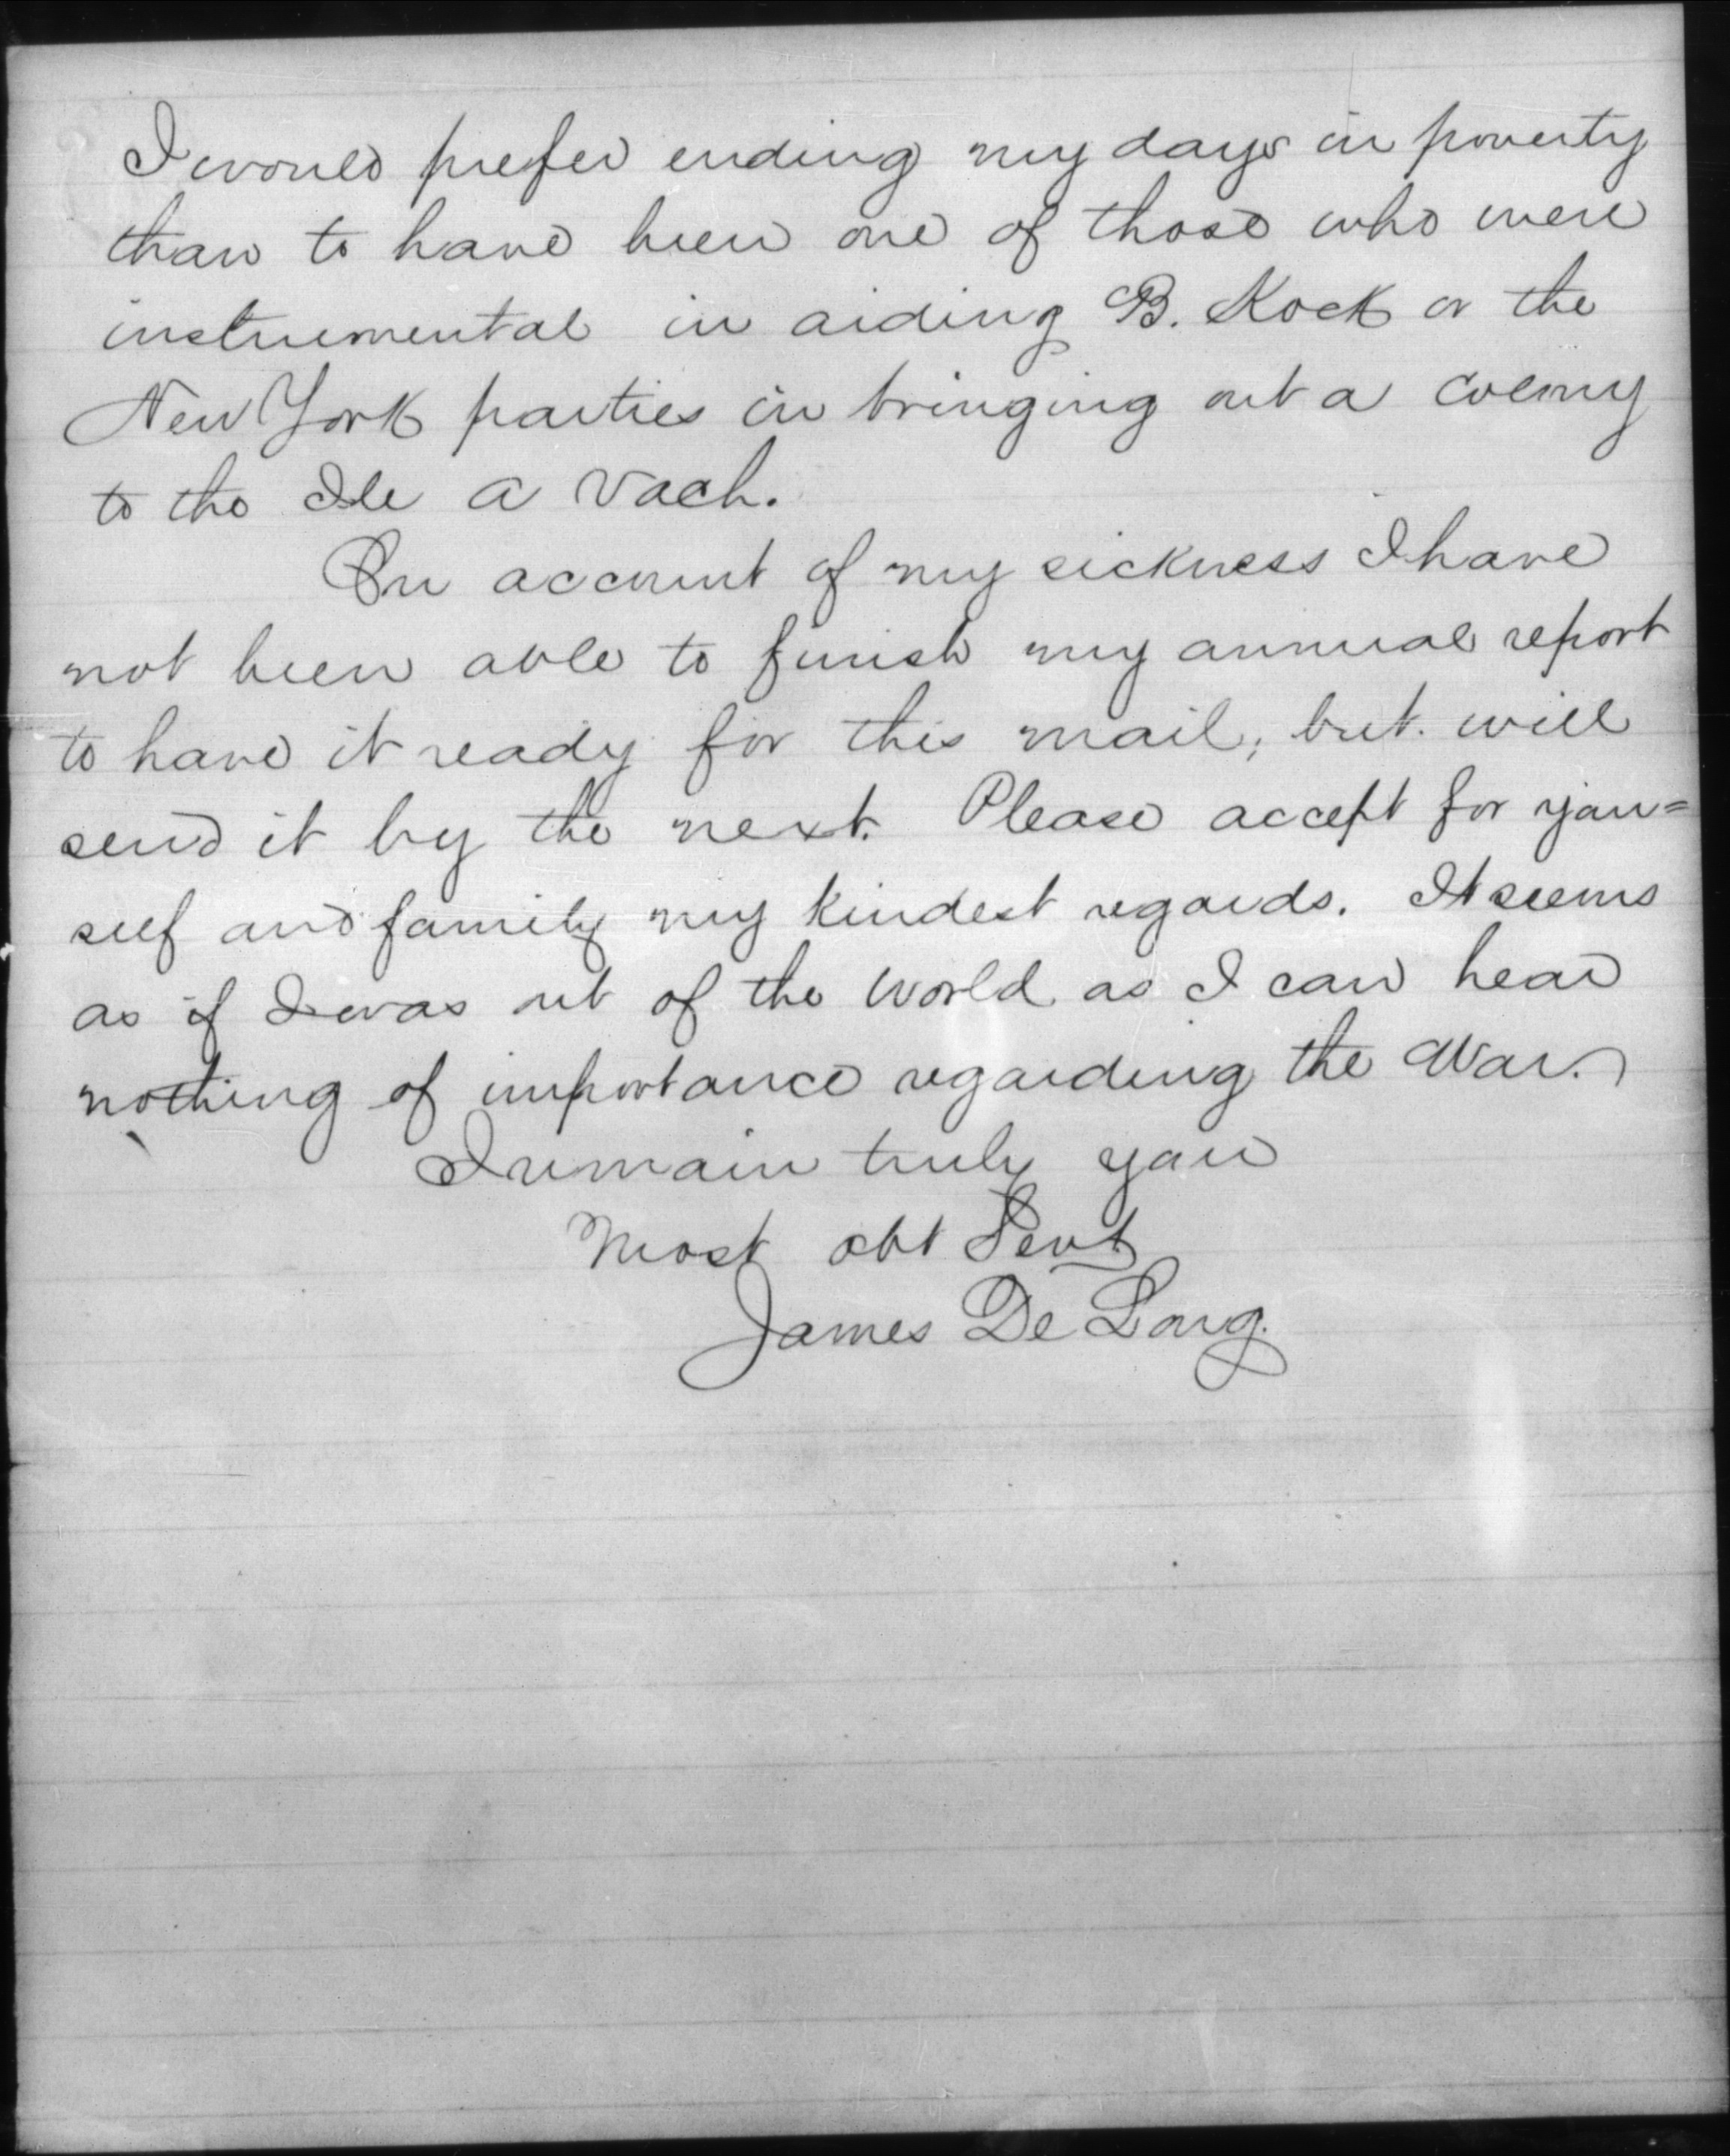 I would prefer ending my days in poverty
than to have been one of those who were
instrumental in aiding B. Kock or the
New York parties in bringing out a colony
to the Ile a Vach.
On account of my sickness I have
not been able to finish my annual report
to have it ready for this mail, but will
send it by the next. Please accept for your=
self and family my kindest regards. It seems
as if I was out of the world as I can hear
nothing of importance regarding the War.
I remain truly your
Most obt Servt
James De Long.